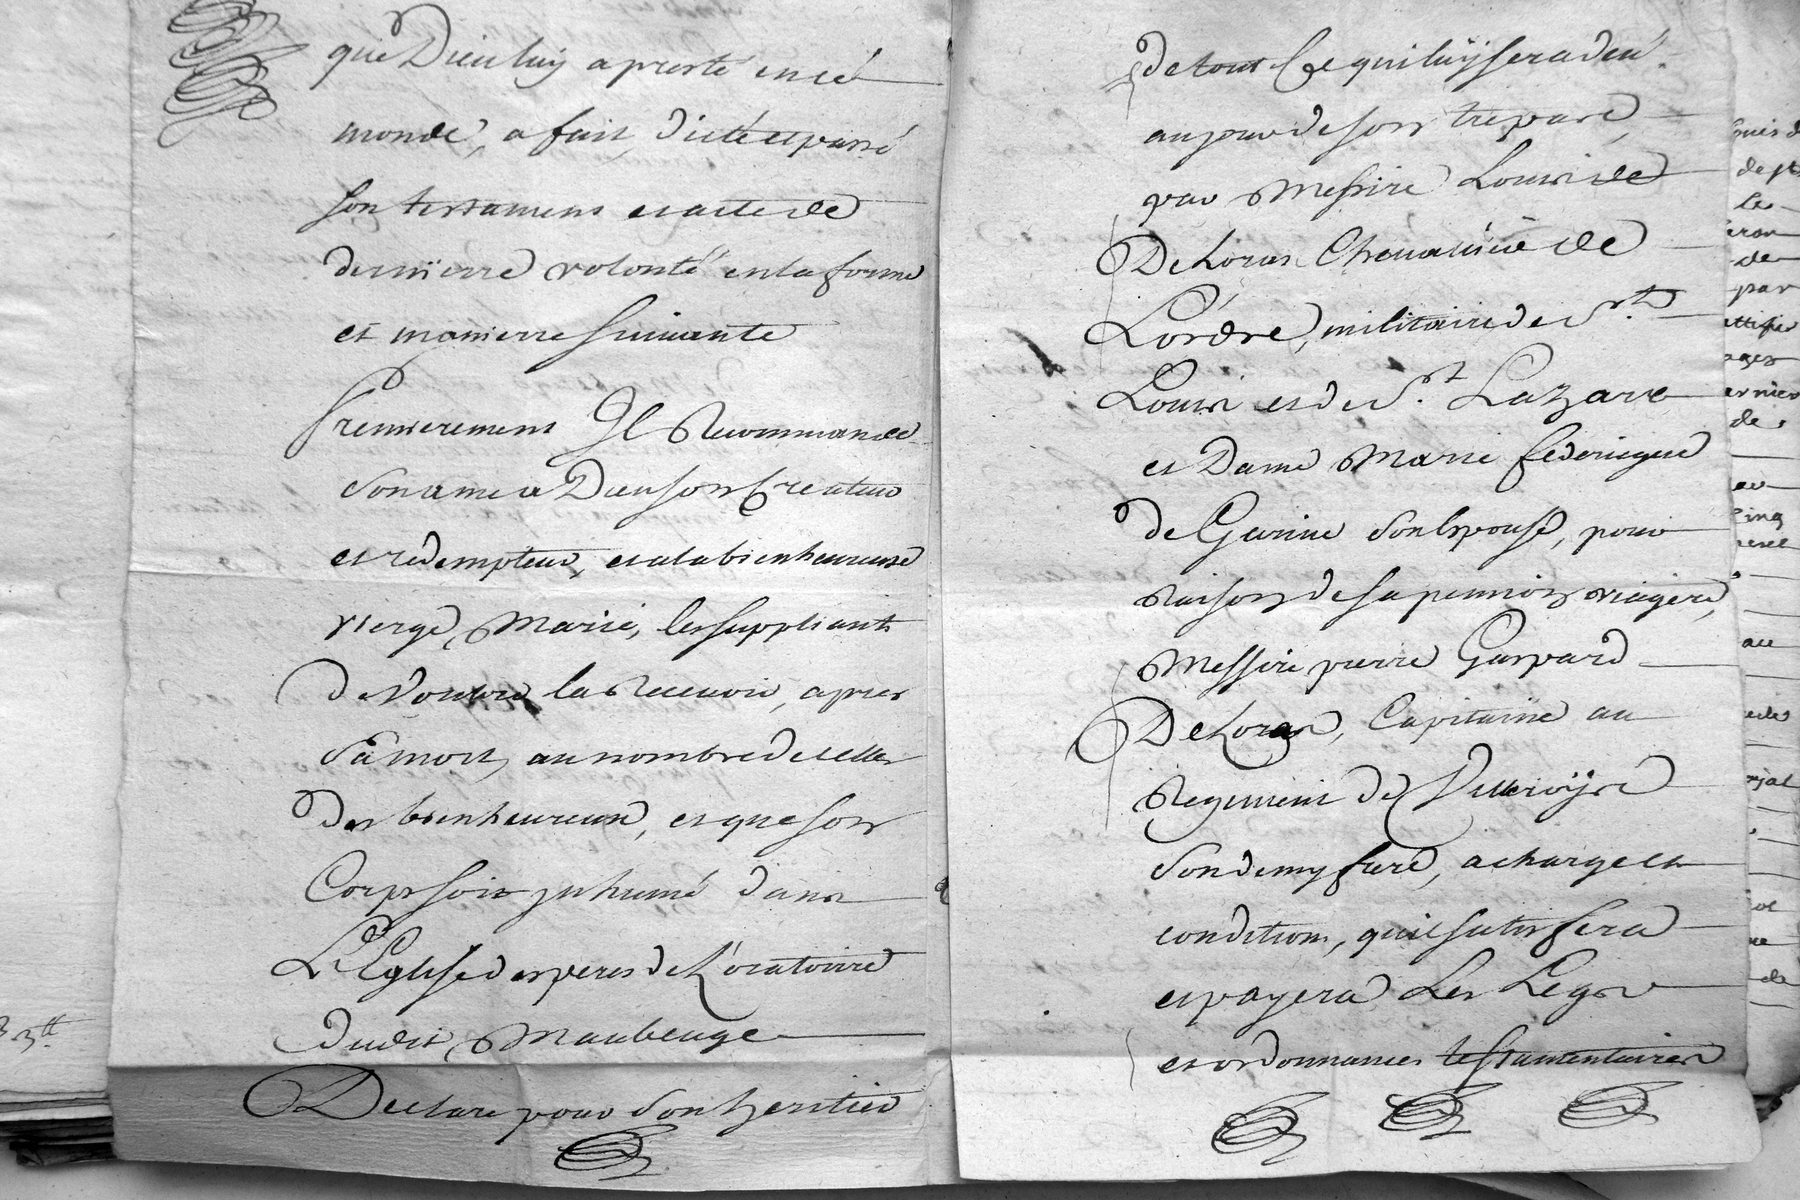 que Dieu luy a presté en cé
monde, a fait, dicté et passé
son testament et acte de
dernierre volonté en la forme
et manierre suivante
Premierement Il Recommande
son ame a Dieu son Createur
et redempteur, et a la bienheureuse
vierge Marie, les suppliant
de vouloir la Recevoir, apres
sa mort, au nombre de celles
des bienheureux, et que son
Corps soit inhumé dans
L'Eglise des peres de L'oratoire
dudit Maubeuge
Declare pour son heritier
de tout Ce qui luÿ sera deu
au jour de son trepare,
par Messire Louis de
De Loras Chevalier de
L'ordre, militaire de St.
Louis et de St. Lazare
et Dame Marie féderique
de son Epouse, pour
Raison de sa pension viagere,
Messire pierre Gaspard
De Loras, Capitaine au
Regiment de
son demy frere, a charge et
condition, qu'il satisfera
et payera Les Legs
et ordonnances testamentaires
de
Le
de
par
de
ac
de
3tt